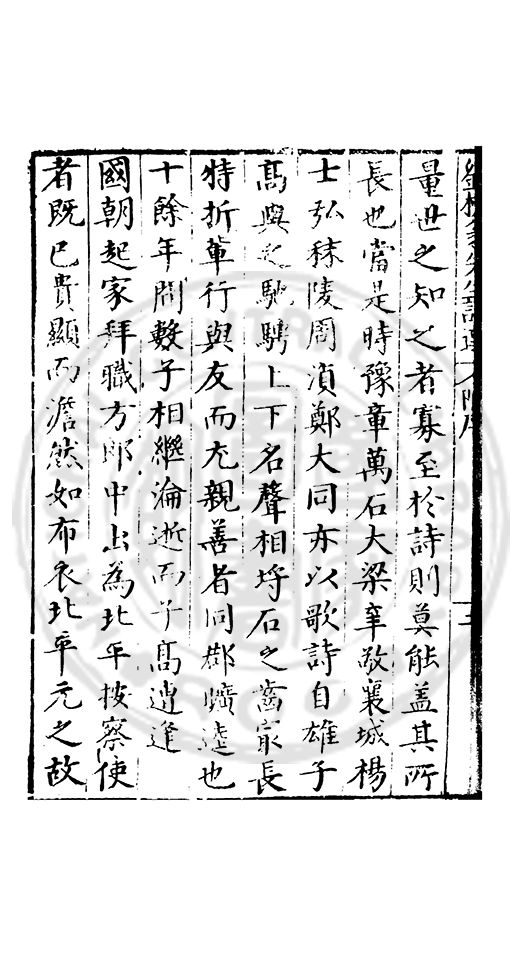 量世之知之者寡至於詩則莫能盖其所
長也當是時豫章萬石大梁辛敬襄城楊
士弘秣陵周湞鄭大同亦以歌詩自雄子
髙與之馳騁上下名聲相埒石之齒㝡長
特折輩行與友而尤親善者同郡曠逵也
十餘年間數子相繼淪逝而子髙遭逢
國朝起家拜職方郎中出為北平按察使
者既已貴顯而澹然如布衣北平元之故